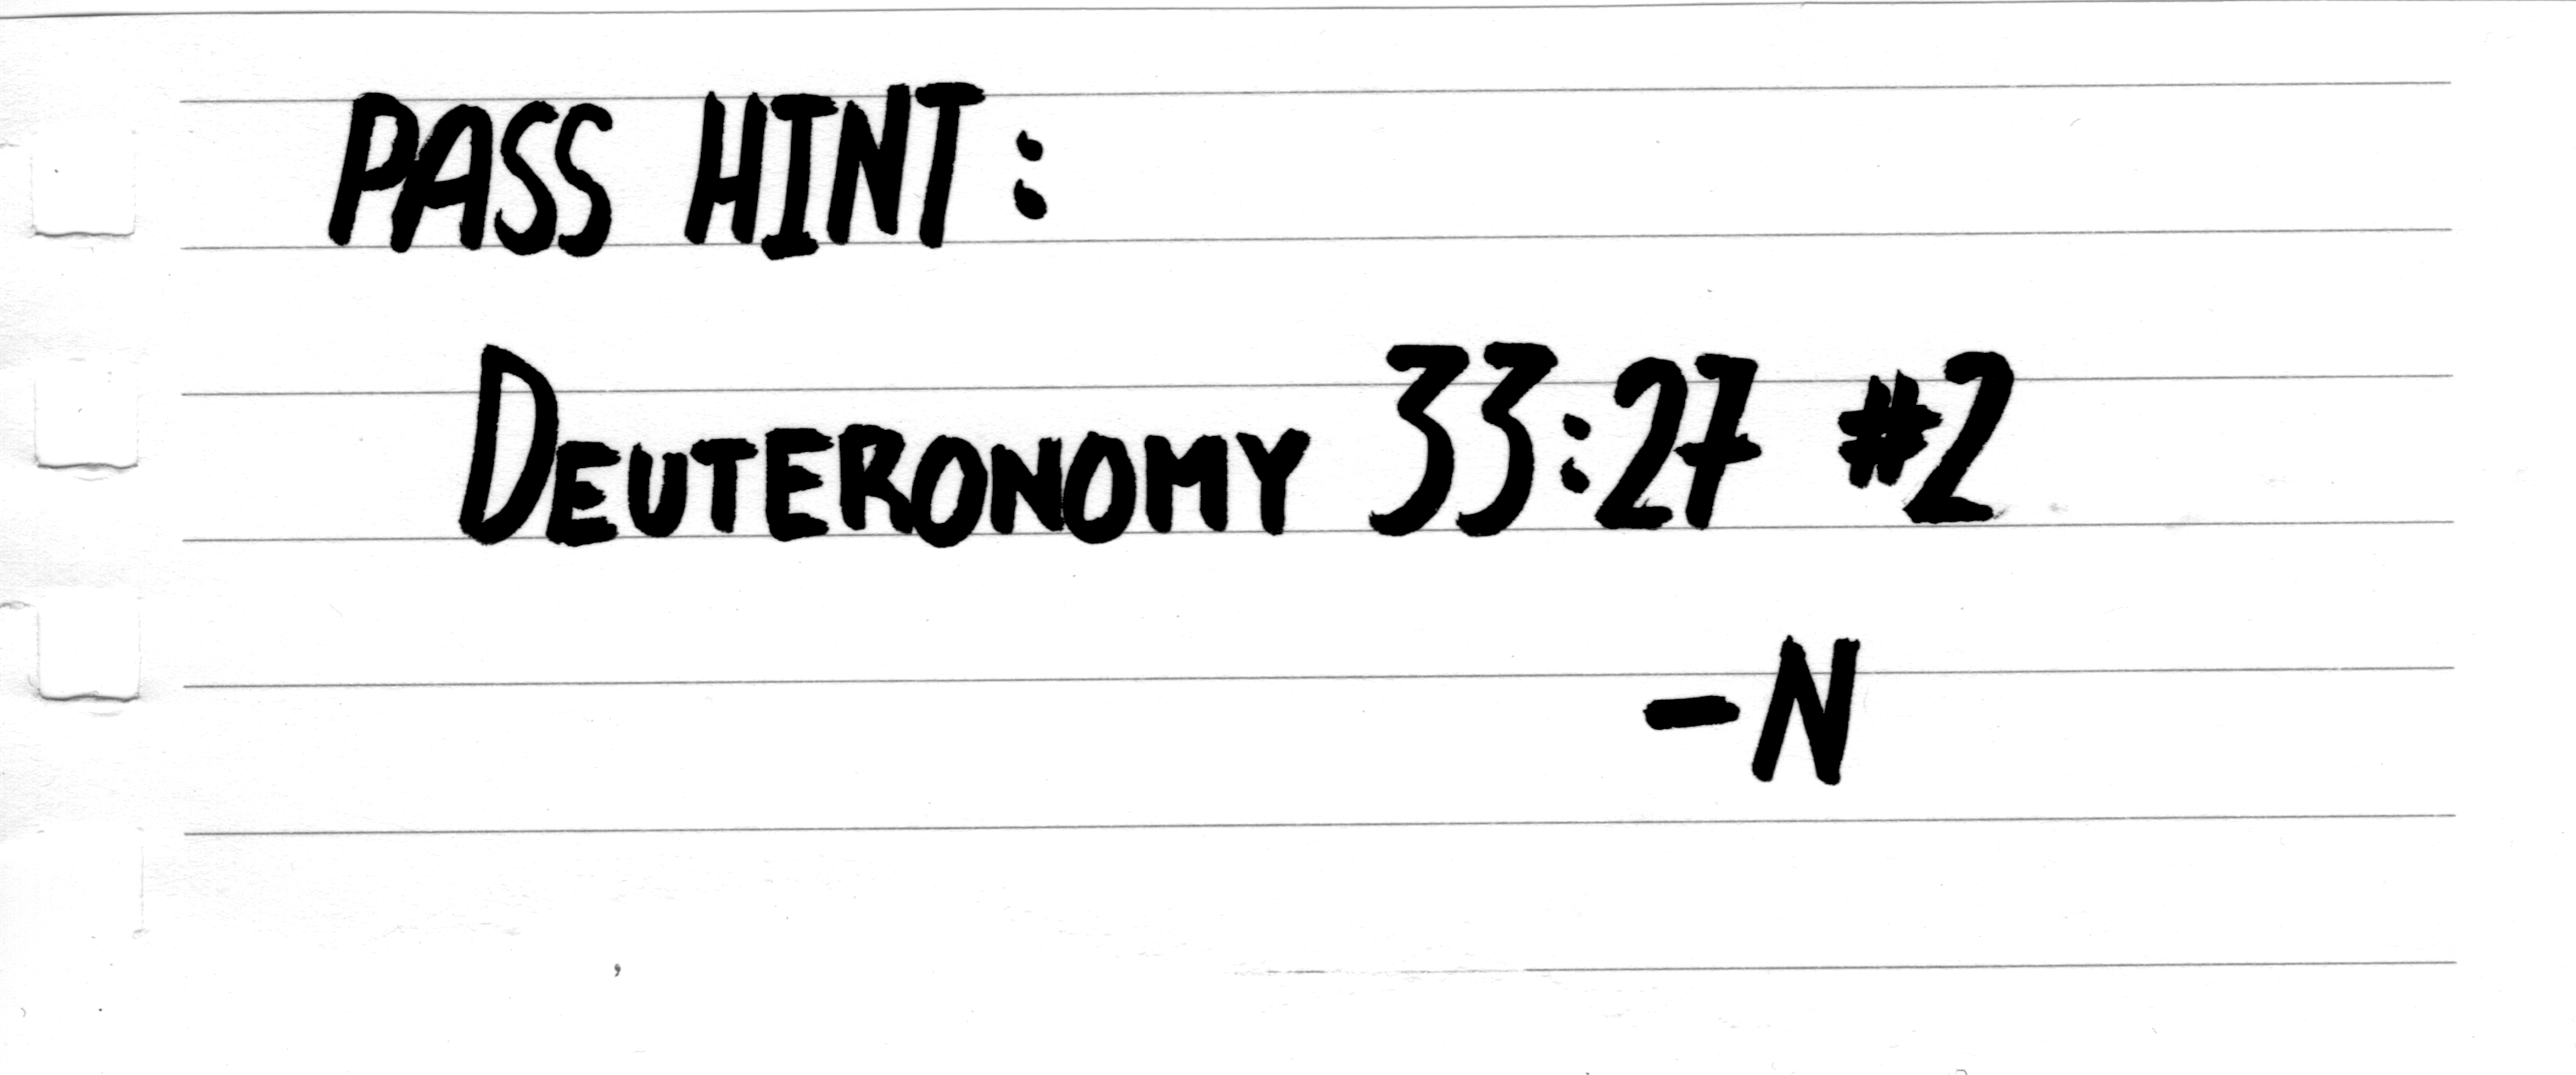 PASS HINT:
DEUTERONOMY 33:27 #2
-N